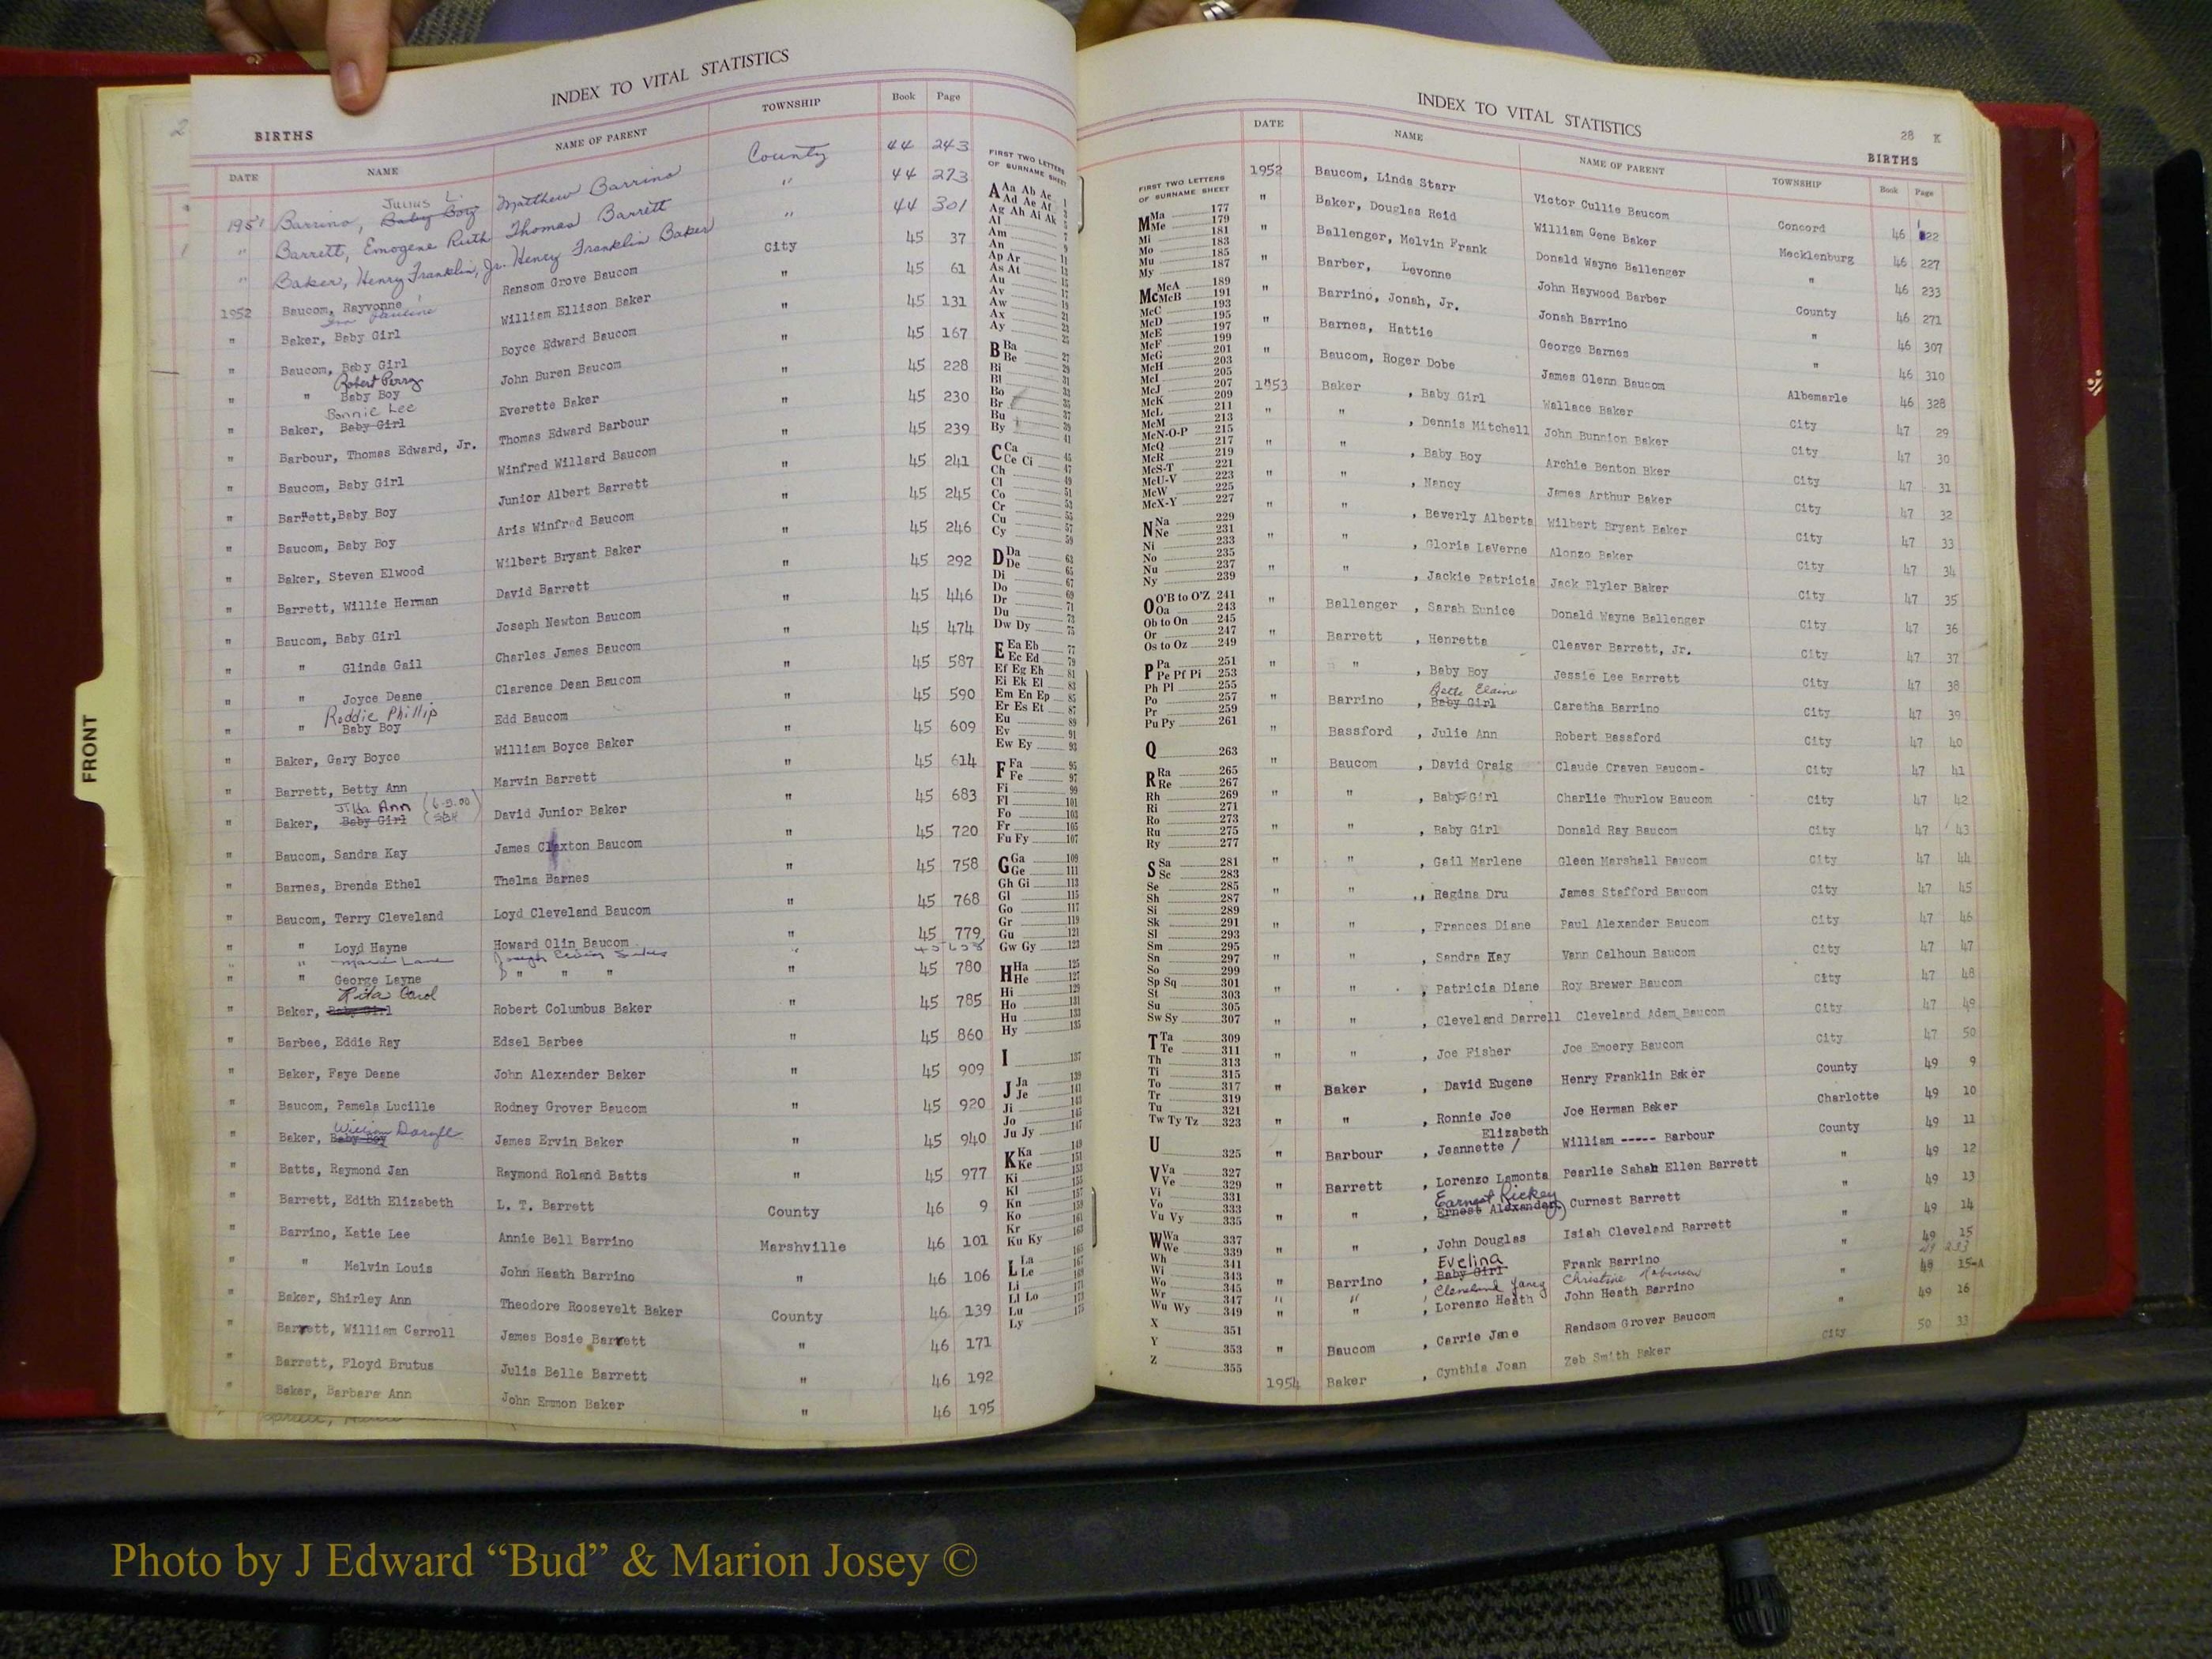 INDEX TO VITAL STATISTICS
BIRTHS
DATE NAME NAME OF PARENT TOWNSHIP Book Page
1951 Barrino, Baby Boy Julius L. Matthew Barrino County 44 243
" Barrett, Emogene Ruth Thomas Barrett " 44 273
" Baker, Henry Franklin, Jr. Henry Franklin Baker " 44 301
1952 Baucom, Rayvonne Ransom Grove Baucom City 45 37
" Baker, Baby Girl Pauline William Ellison Baker " 45 61
" Baucom, Baby Girl Boyce Edward Baucom " 45 131
" " Baby Boy Robert Perry John Buren Baucom " 45 167
" Baker, Baby Girl Bonnie Lee Everette Baker " 45 228
" Barbour, Thomas Edward, Jr. Thomas Edward Barbour " 45 230
" Baucom, Baby Girl Winfred Willard Baucom " 45 239
" Barrett, Baby Boy Junior Albert Barrett " 45 241
" Baucom, Baby Boy Aris Winfred Baucom " 45 245
" Baker, Steven Elwood Wilbert Bryant Baker " 45 246
" Barrett, Willie Herman David Barrett " 45 292
" Baucom, Baby Girl Joseph Newton Baucom " 45 446
" " Glinda Gail Charles James Baucom " 45 474
" " Joyce Deane Clarence Dean Baucom " 45 587
" " Baby Boy Roddie Phillip Edd Baucom " 45 590
" Baker, Gary Boyce William Boyce Baker " 45 609
" Barrett, Betty Ann Marvin Barrett " 45 614
" Baker, Baby Girl Ann David Junior Baker " 45 683
" Baucom, Sandra Kay James Claxton Baucom " 45 720
" Barnes, Brenda Ethel Thelma Barnes " 45 758
" Baucom, Terry Cleveland Loyd Cleveland Baucom " 45 768
" " Loyd Hayne Howard Olin Baucom " 45 779
" " George Layne " " " " 45 780
" Baker, Baby Girl Rita Carol Robert Columbus Baker " 45 785
" Barbee, Eddie Ray Edsel Barbee " 45 860
" Baker, Faye Deane John Alexander Baker " 45 909
" Baucom, Pamela Lucille Rodney Grover Baucom " 45 920
" Baker, Baby Boy William Daryll James Ervin Baker " 45 940
" Batts, Raymond Jan Raymond Roland Batts " 45 977
" Barrett, Edith Elizabeth L. T. Barrett County 46 9
" Barrino, Katie Lee Annie Bell Barrino Marshville 46 101
" " Melvin Louis John Heath Barrino " 46 106
" Baker, Shirley Ann Theodore Roosevelt Baker County 46 139
" Barrett, William Carroll James Bosie Barrett " 46 171
" Barrett, Floyd Brutus Julis Belle Barrett " 46 192
" Baker, Barbara Ann John Emmon Baker " 46 195
FIRST TWO LETTERS
OF SURNAME SHEET
A Aa Ab Ac 1
Ad Ae Af 3
Ag Ah Ai Ak 5
Al 7
Am 9
An 11
Ap Ar 13
As At 15
Au 17
Av 19
Aw 21
Ax 23
Ay 25
B Ba 27
Be 29
Bi 31
Bl 33
Bo 35
Br 37
Bu 39
By 41
C Ca 45
Ce Ci 47
Ch 49
Cl 51
Co 53
Cr 55
Cu 57
Cy 59
D Da 63
De 65
Di 67
Do 69
Dr 71
Du 73
Dw Dy 75
E Ea Eb 77
Ec Ed 79
Ef Eg Eh 81
Ei Ek El 83
Em En Ep 85
Er Es Et 87
Eu 89
Ev 91
Ew Ey 93
F Fa 95
Fe 97
Fi 99
Fl 101
Fo 103
Fr 105
Fu Fy 107
G Ga 109
Ge 111
Gh Gi 113
Gl 115
Go 117
Gr 119
Gu 121
Gw Gy 123
H Ha 125
He 127
Hi 129
Ho 131
Hu 133
Hy 135
I 137
J Ja 139
Je 141
Ji 143
Jo 145
Ju Jy 147
K Ka 149
Ke 151
Ki 153
Kl 155
Kn 157
Ko 159
Kr 161
Ku Ky 163
L La 165
Le 167
Li 171
Ll Lo 173
Lu 175
Ly
INDEX TO VITAL STATISTICS
28 K
BIRTHS
FIRST TWO LETTERS
OF SURNAME SHEET
M Ma 177
Me 179
Mi 181
Mo 183
Mu 185
My 187
Mc McA 189
McB 191
McC 193
McD 195
McE 197
McF 199
McG 201
McH 203
McI 205
McJ 207
McK 209
McL 211
McM 213
McN-O-P 215
McQ 217
McR 219
McS-T 221
McU-V 223
McW 225
McX-Y 227
N Na 229
Ne 231
Ni 233
No 235
Nu 237
Ny 239
O O'B to O'Z 241
Oa 243
Ob to On 245
Or 247
Os to Oz 249
P Pa 251
Pe Pf Pi 253
Ph Pl 255
Po 257
Pr 259
Pu Py 261
Q 263
R Ra 265
Re 267
Rh 269
Ri 271
Ro 273
Ru 275
Ry 277
S Sa 281
Sc 283
Se 285
Sh 287
Si 289
Sk 291
Sl 293
Sm 295
Sn 297
So 299
Sp Sq 301
St 303
Su 305
Sw Sy 307
T Ta 309
Te 311
Th 313
Ti 315
To 317
Tr 319
Tu 321
Tw Ty Tz 323
U 325
V Va 327
Ve 329
Vi 331
Vo 333
Vu Vy 335
W Wa 337
We 339
Wh 341
Wi 343
Wo 345
Wr 347
Wu Wy 349
X 351
Y 353
Z 355
DATE NAME NAME OF PARENT TOWNSHIP Book Page
1952 Baucom, Linda Starr Victor Cullie Baucom Concord 46 22
" Baker, Douglas Reid William Gene Baker Mecklenburg 46 227
" Ballenger, Melvin Frank Donald Wayne Ballenger " 46 233
" Barber, Levonne John Haywood Barber County 46 271
" Barrino, Jonah, Jr. Jonah Barrino " 46 307
" Barnes, Hattie George Barnes " 46 310
" Baucom, Roger Dobe James Glenn Baucom Albemarle 46 328
1953 Baker , Baby Girl Wallace Baker City 47 29
" " , Dennis Mitchell John Bunnion Baker City 47 30
" " , Baby Boy Archie Benton Bker City 47 31
" " , Nancy James Arthur Baker City 47 32
" " , Beverly Alberta Wilbert Bryant Baker City 47 33
" " , Gloria LaVerne Alonzo Baker City 47 34
" " , Jackie Patricia Jack Plyler Baker City 47 35
" Ballenger , Sarah Eunice Donald Wayne Ballenger City 47 36
" Barrett , Henretta Cleaver Barrett, Jr. City 47 37
" " , Baby Boy Jessie Lee Barrett City 47 38
" Barrino , Baby Girl Bette Elaine Caretha Barrino City 47 39
" Bassford , Julie Ann Robert Bassford City 47 40
" Baucom , David Craig Claude Craven Baucom- City 47 41
" " , Baby Girl Charlie Thurlow Baucom City 47 42
" " , Baby Girl Donald Ray Baucom City 47 43
" " , Gail Marlene Gleen Marshall Baucom City 47 44
" " , Regina Dru James Stafford Baucom City 47 45
" " , Frances Diane Paul Alexander Baucom City 47 46
" " , Sandra Kay Vann Calhoun Baucom City 47 47
" " , Patricia Diane Roy Brewer Baucom City 47 48
" " , Cleveland Darrell Cleveland Adam Baucom City 47 49
" " , Joe Fisher Joe Emoery Baucom City 47 50
" Baker , David Eugene Henry Franklin Baker County 49 9
" " , Ronnie Joe Joe Herman Baker Charlotte 49 10
" Barbour , Jeannette / Elizabeth William ----- Barbour County 49 11
" Barrett , Lorenzo Lamonta Pearlie Sahah Ellen Barrett " 49 12
" " , Ernest Alexander Earnest Rickey Curnest Barrett " 49 13
" " , John Douglas Isiah Cleveland Barrett " 49 14
" Barrino , Baby Girl Evelina Frank Barrino " 49 15
" " Cleveland Christine Robinson 15-A
" " , Lorenzo Heath John Heath Barrino " 49 16
" Baucom , Carrie Jane Randsom Grover Baucom " 50 33
1954 Baker , Cynthia Joan Zeb Smith Baker City
FRONT
Photo by J Edward “Bud” & Marion Josey ©